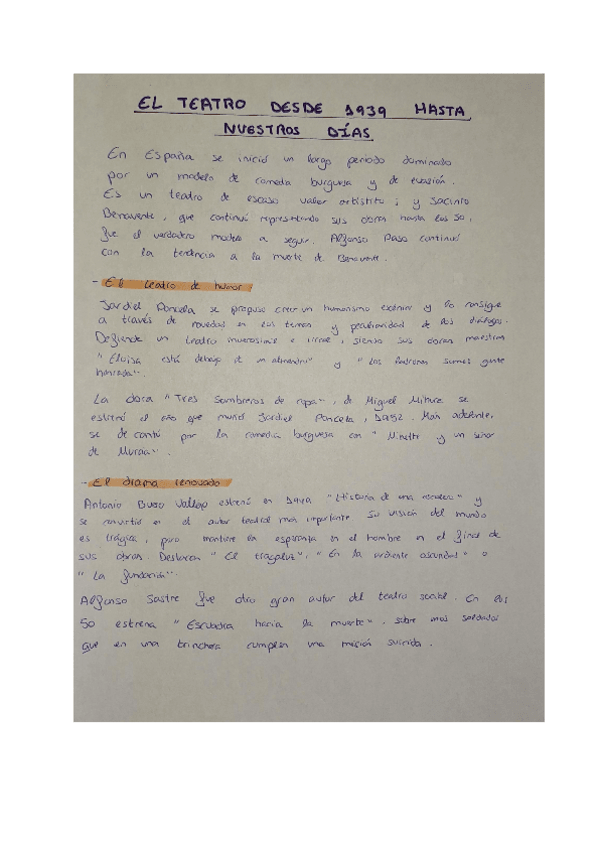 EL TEATRO DESDE 1939 HASTA
NUESTROS DÍAS
En España se inició un largo periodo dominado
por un modelo de comedia burguesa y de evasión.
Es un teatro de escaso valor artístico; y Jacinto
Benavente, que continuó representando sus obras hasta los 50,
fue el verdadero modelo a seguir. Alfonso Paso continuó
con la tendencia a la muerte de Benavente.
- El teatro de humor:
Jardiel Poncela se propuso crear un humorismo y lo consigue
a través de novedad en los temas y peculiaridad de los diálogos.
Defiende un teatro inverosímil e irreal, siendo sus obras maestras
"Eloísa está debajo de un almendro" y "Los ladrones somos gente
honrada".
La obra "Tres Sombreros de copa", de Miguel Mihura se
estrenó el año que murió Jardiel Poncela, 1952. Más adelante,
se decantó por la comedia burguesa con "Ninette y un señor
de Murcia".
- El drama renovado
Antonio Buero Vallejo estrenó en "Historia de una escalera" y
se convirtió en el autor teatral más importante. Su visión del mundo
es trágica, pero mantiene la esperanza en el hombre en el final de
sus obras. Destacan "El tragaluz", "En la ardiente oscuridad" o
"La fundación".
Alfonso Sastre fue otro gran autor del teatro social. En los
50 estrena "Escuadra hacia la muerte", sobre unos soldados
que en una trinchera cumplen una misión suicida.